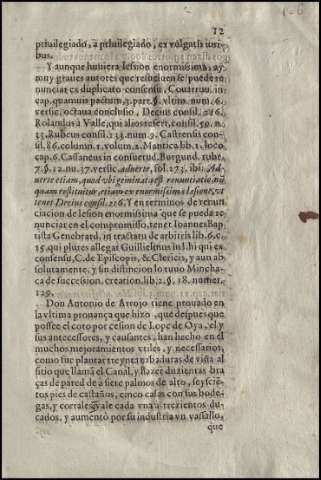 12
priuilegiado, a priuilegiado, ex vulgatis iuri-
bus.
Y aunque huuiera lesion enormissima, ay
mny graues autores que resueluen se puede re-
nunciar ex duplicato consensu, Couarruu. in
cap. quamuis pactum, 3. part. §. vltim. num. 6.
versic. octaua conclusio, Decius consil. 216.
Rolandus à Valle, qui alios refert, consil. 50. n.
33. Rubeus consil. 133. num. 9. Castrensis con-
sil. 86. column. 1. volum. 2. Mantica lib. 1. loco,
cap. 6. Cassaneus in consuetud. Burgund. rubr.
7. §. 12. nu. 37. versic. aduerte, fol. 273. ibi, Ad-
uerte etiam, quod vbi geminata est renuntiatio nũ
quam restituitur, etiam ex enormissima læsione, vt
tenet Decius consil. 216. Y en terminos de renun
ciacion de lesion enormissima que se pueda re-
nunciar en el compromisso, tenet Ioannes Bap
tista Genebrard. in tractatu de arbitris lib. 6. c.
15. qui plures allegat Guillielmus in l. hi qui ex
consensu, C. de Episcopis, & Clericis, y aun ab-
solutamente, y sin distincion lo tuuo Mincha-
ca de succession. creation. lib. 2. §. 18. numer.
129.
Don Antonio de Arrojo tiene prouado en
la vltima prouança que hizo, que despues que
possee el coto por cesion de Lope de Oya, el y
sus antecessores, y causantes, han hecho en el
muchos mejoramientos vtiles, y necessarios,
como fue plantar treynta cabaduras de viña al
sitio que llamã el Canal, y hazer duzientas bra
ças de pared de a siete palmos de alto, seyscie
tos pies de castaños, cinco casas con sus bode-
gas, y corrales q̃ vale cada vna a trezientos du-
cados, y aumentò por su industria vn vassallo,
que